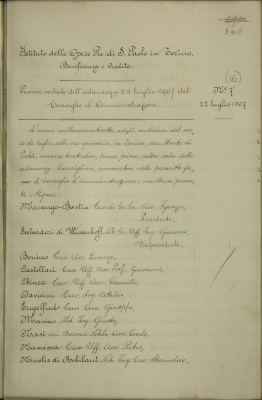 340
Istituto delle Opere Pie di S. Paolo in Torino,
Beneficenza e Credito.
Processo verbale dell'adunanza 22 luglio 1907 del
Consiglio d'Amministrazione.
(16)
N.º 7
22 luglio 1907
L'anno millenovecentosette, addì ventidue del me-
se di luglio, alle ore in Torino, via Monte di
Pietà, numero trentadue, piano primo, nella sala delle
adunanze Consigliari, convocatosi nelle prescritte for-
me il Consiglio d'amministrazione, risultano presen-
ti i Signori:
Marsengo-Bastia Cav. di Gr. Cr. Avv. Ignazio,
Presidente,
Salvadori di Wiesenhoff, Gr. Uff. Ing. Giacomo,
Vicepresidente,
Bonino Cav. Avv. Lorenzo,
Castellari Cav. Uff. Avv. Prof. Giovanni,
Cav. Uff. Avv. Camillo,
Davicini Cav. Ing.
Engelfred Cav. Avv.
Masino Nob. Ing.
Nasi dei Baroni Nob. Avv. Carlo,
Cav. Uff. Avv. Pietro,
Nicolis di Robilant Nob. Ing. Cav. Stanislao,